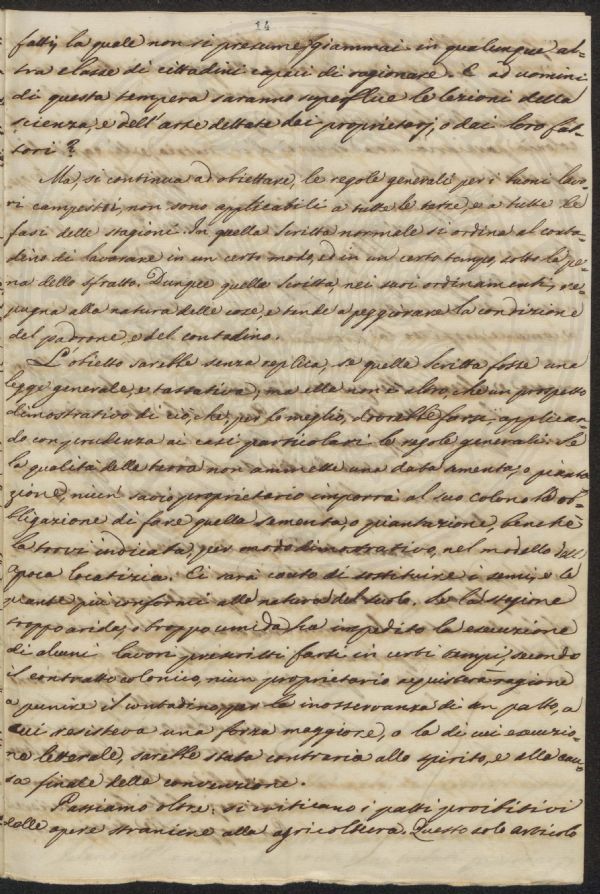 14
fatti, la quale non si presume giammai in qualunque al-
tra classe di cittadini capaci di ragionare. E ad uomini
di questa tempera saranno superflue le lezioni della
scienza, e dell'arte dettate dai proprietarj, o dai loro fat-
tori?
Ma, si continua ad obiettare, le regole generali per i buoni lavo-
ri campestri, non sono applicabili a tutte le terre, e a tutte le
fasi delle stagioni. In quella scritta normale si ordina al conta-
dino di lavorare in un certo modo, ed in un certo tempo, sotto la pe-
na dello sfratto. Dunque quella scritta nei suoi ordinamenti, re-
pugna alla natura delle cose, e tende a peggiorare la condizione
del padrone, e del contadino.
L'obietto sarebbe senza replica, se quella scritta fosse una
legge generale, e tassativa, ma ella non è altro, che un prospetto
dimostrativo di ciò, che, per lo meglio, dovrebbe farsi, applican-
do con prudenza ai casi particolari le regole generali. Se
la qualità della terra non ammette una data sementa, o pianta
zione, niun savio proprietario imporrà al suo colono la ob-
bligazione di fare quella sementa, o piantazione, benchè
la trovi indicata, per modo dimostrativo, nel modello dell'
Apoca locatizia. Ci sarà luogo di sostituire i semi, e le
piante più conformi alla natura del suolo. Se la stagione
troppo arida, o troppo umida ha impedito la esecuzione
di alcuni lavori prescritti farsi in certi tempi, secondo
il contratto colonico, niun proprietario acquisterà ragione
a punire il contadino per la inosservanza di un patto, a
cui resisteva una forza maggiore, o la di cui esecuzio-
ne letterale, sarebbe stata contraria allo spirito, e alla cau-
sa finale della convenzione.
Passiamo oltre: si criticano i patti proibitivi
delle opere straniere alla agricoltura. Questo solo articolo